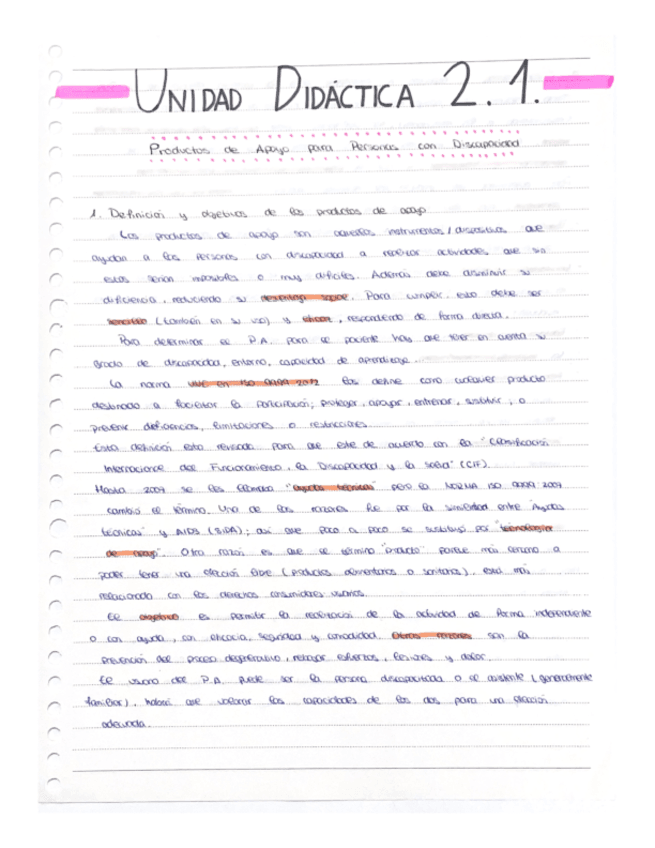 UNIDAD DIDÁCTICA 2.1.
Productos de Apoyo para Personas con Discapacidad
1. Definición y objetivos de los productos de apoyo
Los productos de apoyo son aquellos instrumentos / dispositivos que
ayudan a las personas con discapacidad a realizar actividades que sin
estos serían imposibles o muy difíciles. Además debe disminuir su
dificiencia, reduciendo su desventaja social. Para cumplir esto debe ser
sencillo (también en su uso) y eficaz, respondiendo de forma directa.
Para determinar el P.A. para el paciente hay que tener en cuenta su
grado de discapacidad, entorno, capacidad de aprendizaje.
La norma UNE en ISO 9999 2012 los define como cualquier producto
destinado a facilitar la participación; proteger, apoyar, entrenar, sustituir, o
prevenir deficiencias, limitaciones o restricciones.
Esta definición esta revisada para que este de acuerdo con la "Clasificación
Internacional del Funcionamiento, la Discapacidad y la Salud" (CIF).
Hasta 2007 se les llamaba "ayudas técnicas" pero la NORMA ISO 9999 2007
cambió el término. Una de las razones fue por la similitud entre "Ayudas
técnicas" y AIDS (SIDA); así que poco a poco se sustituyó por "tecnologías
de apoyo". Otra razón es que el término "producto" parece más cercano a
poder tener una elección libre (productos alimentarios o sanitarios), está más
relacionada con los derechos consumidores usuarios.
El objetivo es permitir la realización de la actividad de forma independiente
o con ayuda, con eficacia, seguridad y comodidad. Otras razones son la
prevención del proceso degenerativo, rebajar esfuerzos, lesiones y dolor.
El usuario del P.A. puede ser la persona discapacitada o el asistente (generalmente
familiar), habrá que valorar las capacidades de los dos para una elección
adecuada.